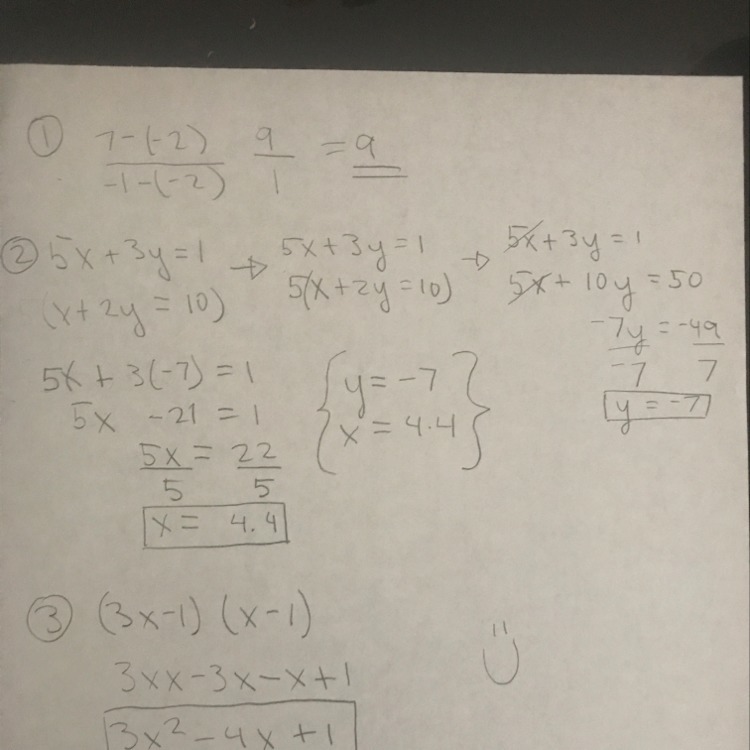 ① 7-(-2) / -1-(-2)  9/1 = 9
② 5x+3y=1 → 5x+3y=1 → 5x+3y=1
(x+2y=10)  5(x+2y=10)  5x+10y=50
-7y/-7 = -49/7
y=-7
5x+3(-7)=1
5x -21=1
5x/5 = 22/5
x= 4.4
{y=-7
x=4.4}
③ (3x-1)(x-1)
3xx-3x-x+1
3x²-4x+1